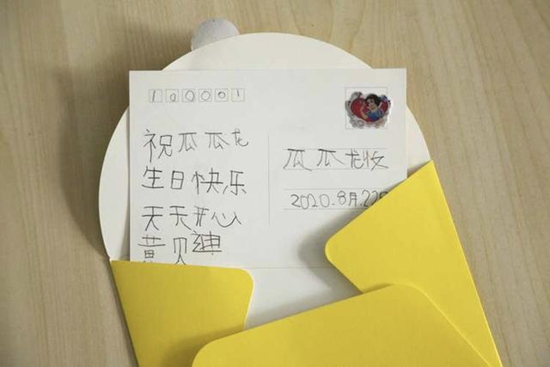 100001
祝瓜瓜龙
生日快乐
天天开心
黄贝
瓜瓜龙收
2020.8月.22